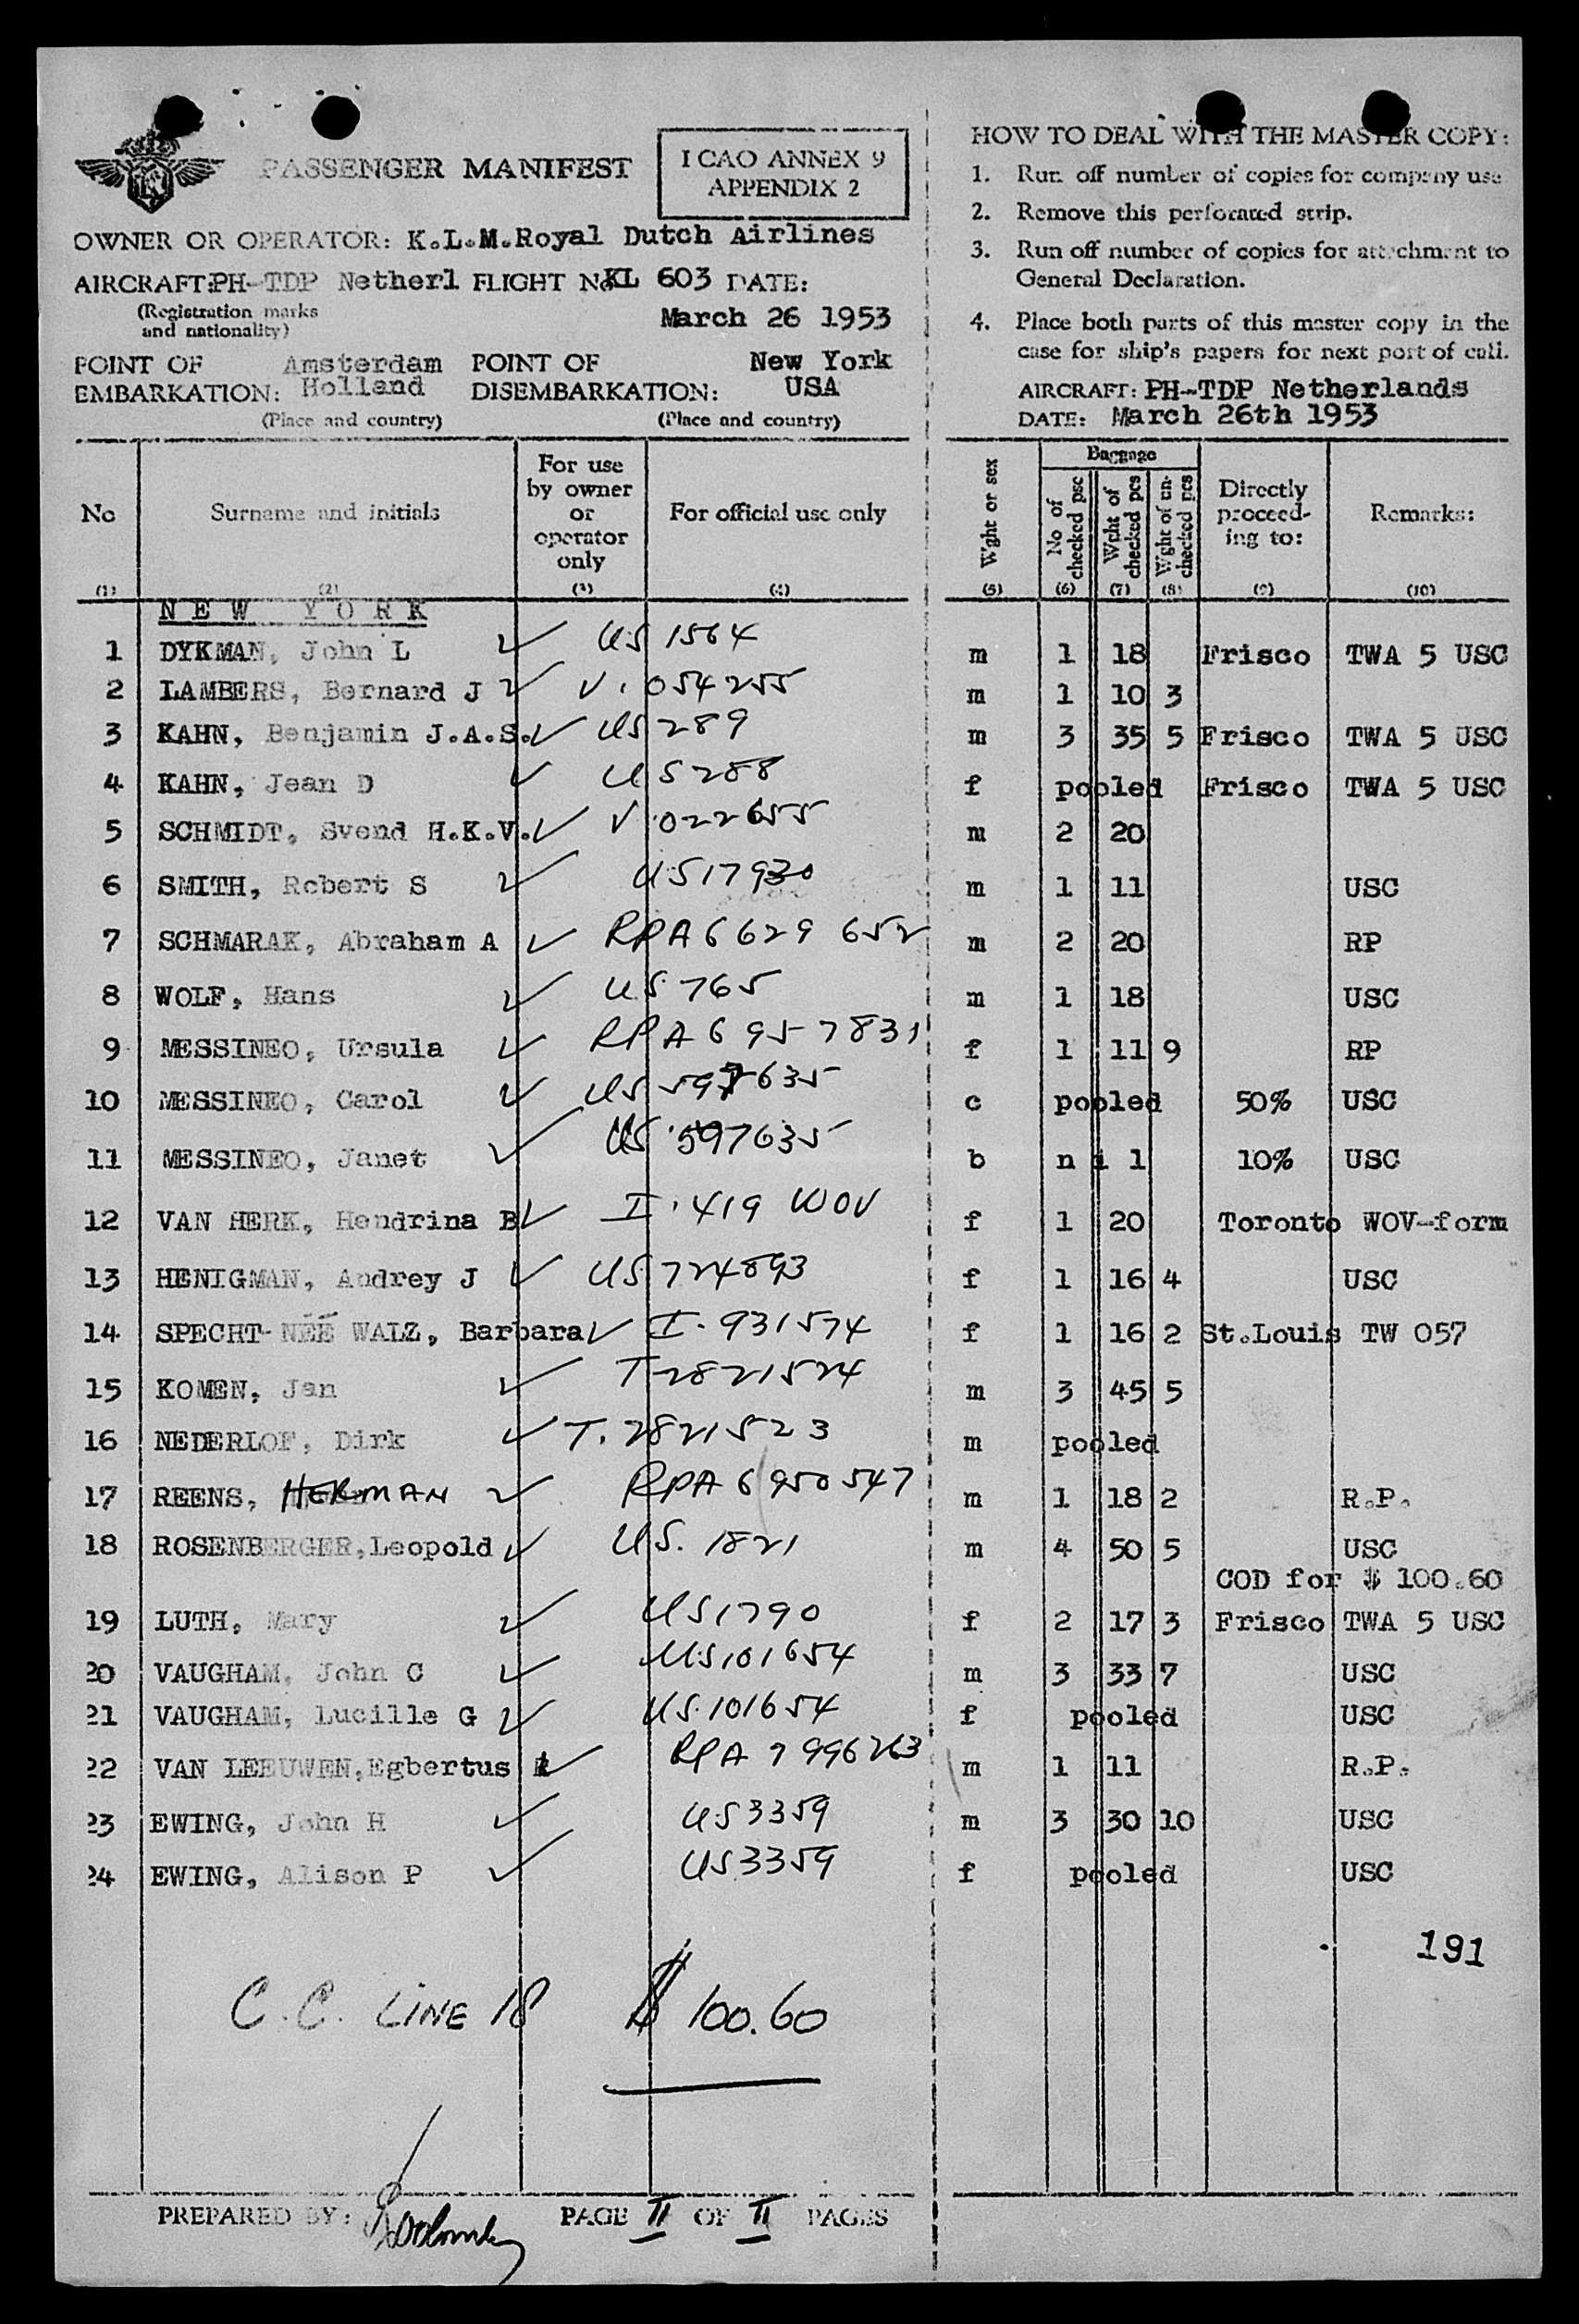 PASSENGER MANIFEST
I CAO ANNEX 9
APPENDIX 2
OWNER OR OPERATOR: K.L.M.Royal Dutch Airlines
AIRCRAFT:PH-TDP Netherl FLIGHT No KL 603 DATE:
(Registration marks
and nationality)
March 26 1953
POINT OF Amsterdam POINT OF New York
EMBARKATION: Holland DISEMBARKATION: USA
(Place and country) (Place and country)
HOW TO DEAL WITH THE MASTER COPY:
1. Run off number of copies for company use
2. Remove this perforated strip.
3. Run off number of copies for attachment to
General Declaration.
4. Place both parts of this master copy in the
case for ship's papers for next port of call.
AIRCRAFT: PH-TDP Netherlands
DATE: March 26th 1953
No Surname and initials For use by owner or operator only For official use only Wght or sex Baggage No of checked psc Wght of checked pcs Wght of un-checked pcs Directly proceed-ing to: Remarks:
(1) (2) (3) (4) (5) (6) (7) (8) (9) (10)
NEW YORK
1 DYKMAN, John L ✓ US 1564 m 1 18 Frisco TWA 5 USC
2 LAMBERS, Bernard J ✓ V. 054255 m 1 10 3
3 KAHN, Benjamin J.A.S. ✓ US 289 m 3 35 5 Frisco TWA 5 USC
4 KAHN, Jean D ✓ US 288 f pooled Frisco TWA 5 USC
5 SCHMIDT, Svend H.K.V. ✓ V.022655 m 2 20
6 SMITH, Robert S ✓ US17930 m 1 11 USC
7 SCHMARAK, Abraham A ✓ RPA6629 652 m 2 20 RP
8 WOLF, Hans ✓ US 765 m 1 18 USC
9 MESSINEO, Ursula ✓ RPA 6957831 f 1 11 9 RP
10 MESSINEO, Carol ✓ US 597635 c pooled 50% USC
11 MESSINEO, Janet ✓ US 597635 b n i l 10% USC
12 VAN HERK, Hendrina B ✓ I. 419 WOV f 1 20 Toronto WOV-form
13 HENIGMAN, Audrey J ✓ US 724893 f 1 16 4 USC
14 SPECHT- NÉE WALZ, Barbara ✓ I. 931574 f 1 16 2 St.Louis TW 057
15 KOMEN, Jan ✓ T2821524 m 3 45 5
16 NEDERLOF, Dirk ✓ T.2821523 m pooled
17 REENS, HERMAN ✓ RPA 6950547 m 1 18 2 R.P.
18 ROSENBERGER,Leopold ✓ US. 1821 m 4 50 5 USC
COD for $ 100.60
19 LUTH, Mary ✓ US1790 f 2 17 3 Frisco TWA 5 USC
20 VAUGHAM, John C ✓ US101654 m 3 33 7 USC
21 VAUGHAM, Lucille G ✓ US.101654 f pooled USC
22 VAN LEEUWEN,Egbertus ✓ RPA 7996263 m 1 11 R.P.
23 EWING, John H ✓ US3359 m 3 30 10 USC
24 EWING, Alison P ✓ US3359 f pooled USC
191
C.C. LINE 18 $ 100.60
PREPARED BY: PAGE II OF II PAGES